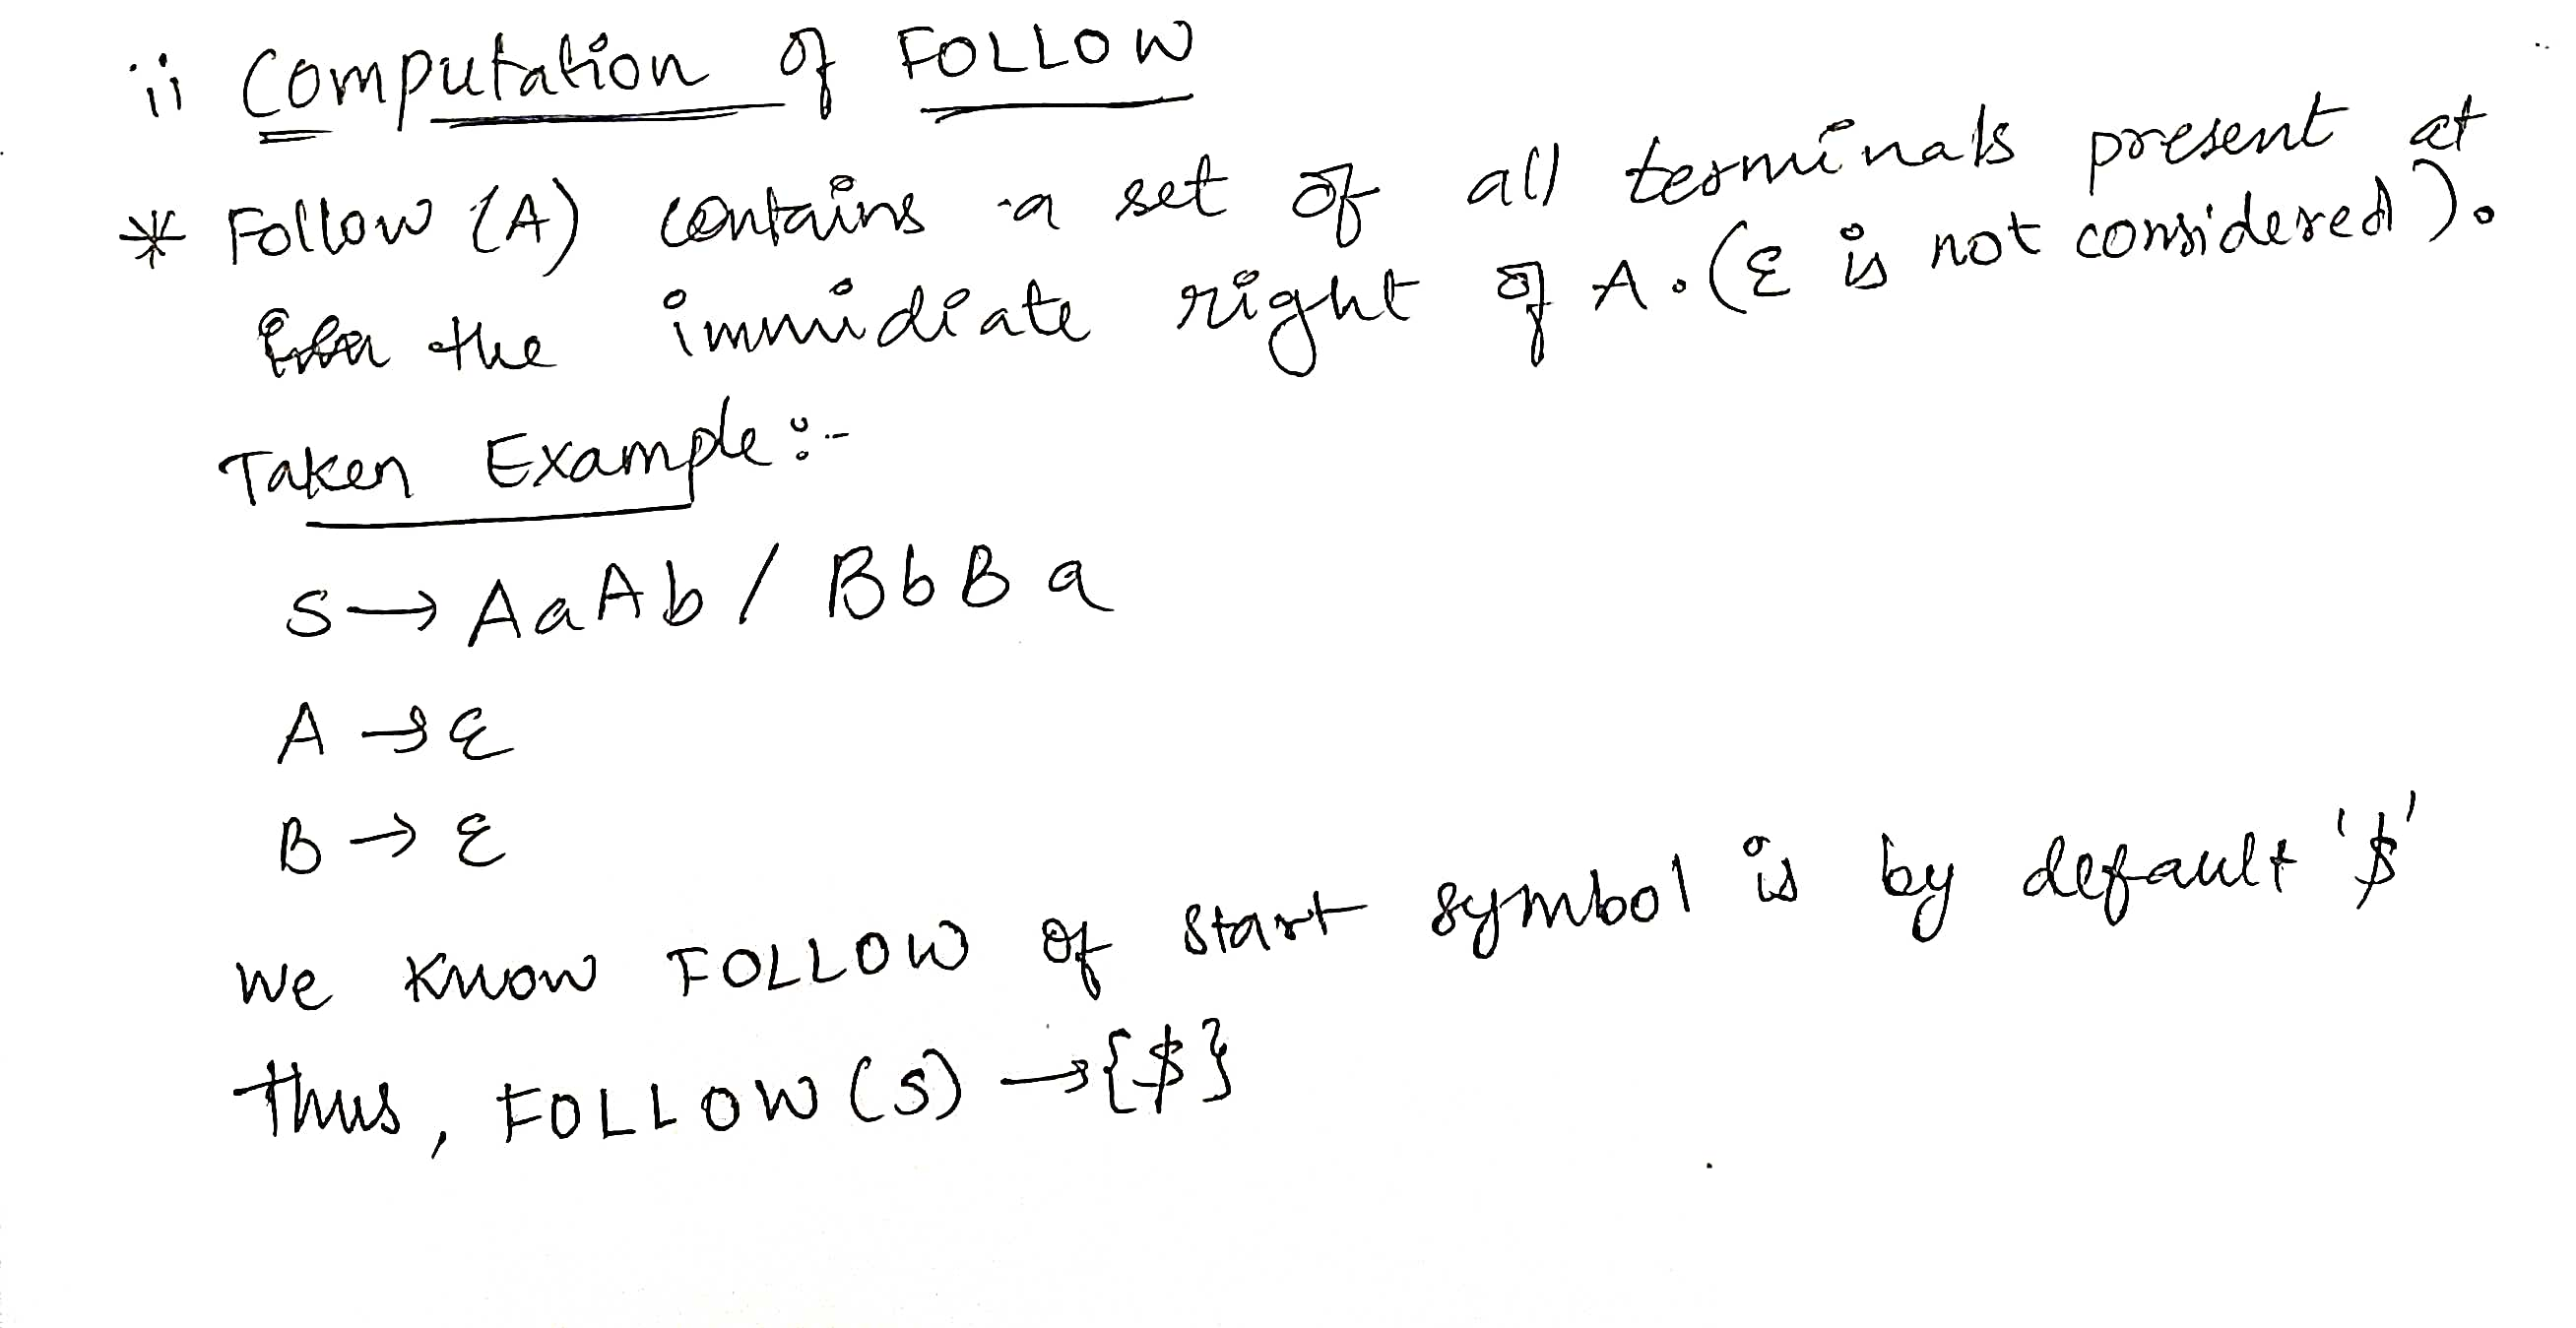 ii Computation of FOLLOW
* Follow (A) contains a set of all terminals present at
the immidiate right of A. (ε is not considered).
Taken Example :-
S → AaAb / BbBa
A → ε
B → ε
We Know FOLLOW of Start symbol is by default '$'
Thus, FOLLOW (S) → {$}